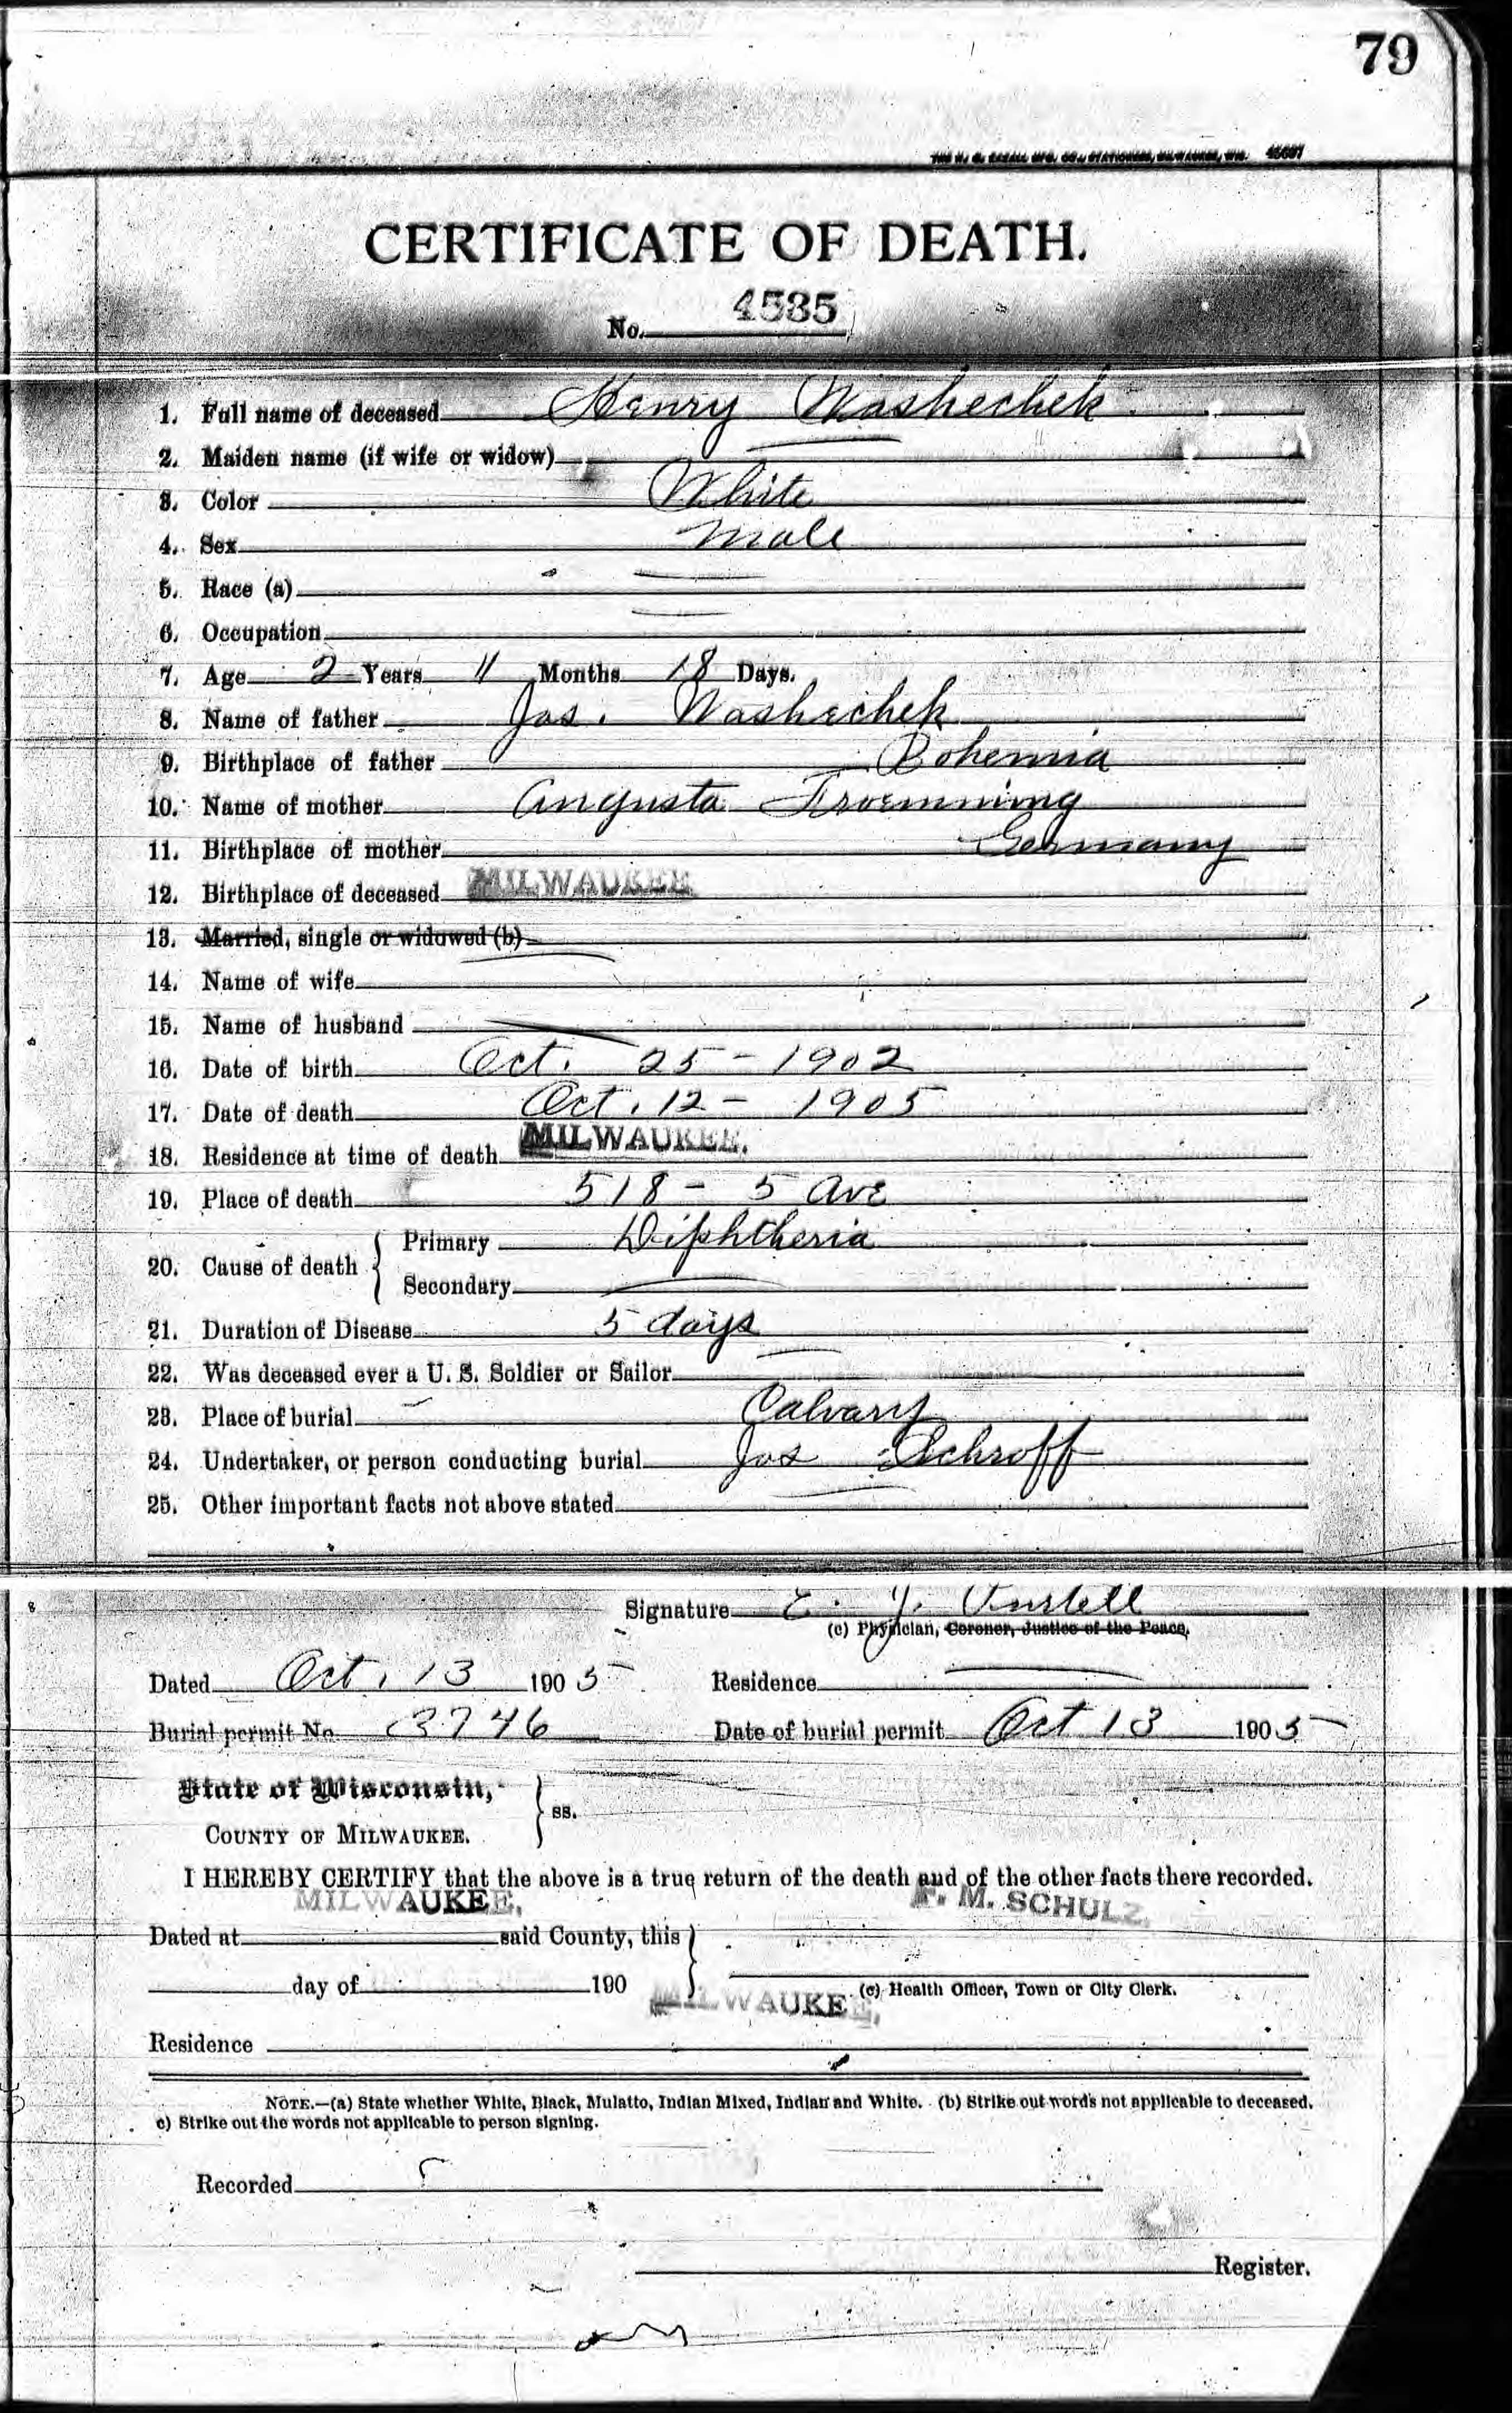 79
CERTIFICATE OF DEATH.
No. 4535
1. Full name of deceased Henry Washechek
2. Maiden name (if wife or widow)
3. Color White
4. Sex Male
5. Race (a)
6. Occupation
7. Age 2 Years 11 Months 18 Days.
8. Name of father Jas. Washechek
9. Birthplace of father Bohemia
10. Name of mother Augusta Froemming
11. Birthplace of mother Germany
12. Birthplace of deceased MILWAUKEE
13. Married, single or widowed (b)
14. Name of wife
15. Name of husband
16. Date of birth Oct. 25 - 1902
17. Date of death Oct. 12 - 1905
18. Residence at time of death MILWAUKEE.
19. Place of death 518 - 5 Ave
20. Cause of death
Primary Diphtheria
Secondary
21. Duration of Disease 5 days
22. Was deceased ever a U. S. Soldier or Sailor
23. Place of burial Calvary
24. Undertaker, or person conducting burial Jos Schroff
25. Other important facts not above stated
Signature E. J.
(c) Physician, Coroner, Justice of the Peace.
Dated Oct. 13 1905 Residence
Burial permit No. 3746 Date of burial permit Oct 13 1905
State of Wisconsin,
ss.
COUNTY OF MILWAUKEE.
I HEREBY CERTIFY that the above is a true return of the death and of the other facts there recorded.
MILWAUKEE, F. M. SCHULZ,
Dated at said County, this
day of 190
(c) Health Officer, Town or City Clerk.
MILWAUKEE,
Residence
NOTE.—(a) State whether White, Black, Mulatto, Indian Mixed, Indian and White. (b) Strike out words not applicable to deceased.
c) Strike out the words not applicable to person signing.
Recorded
Register.